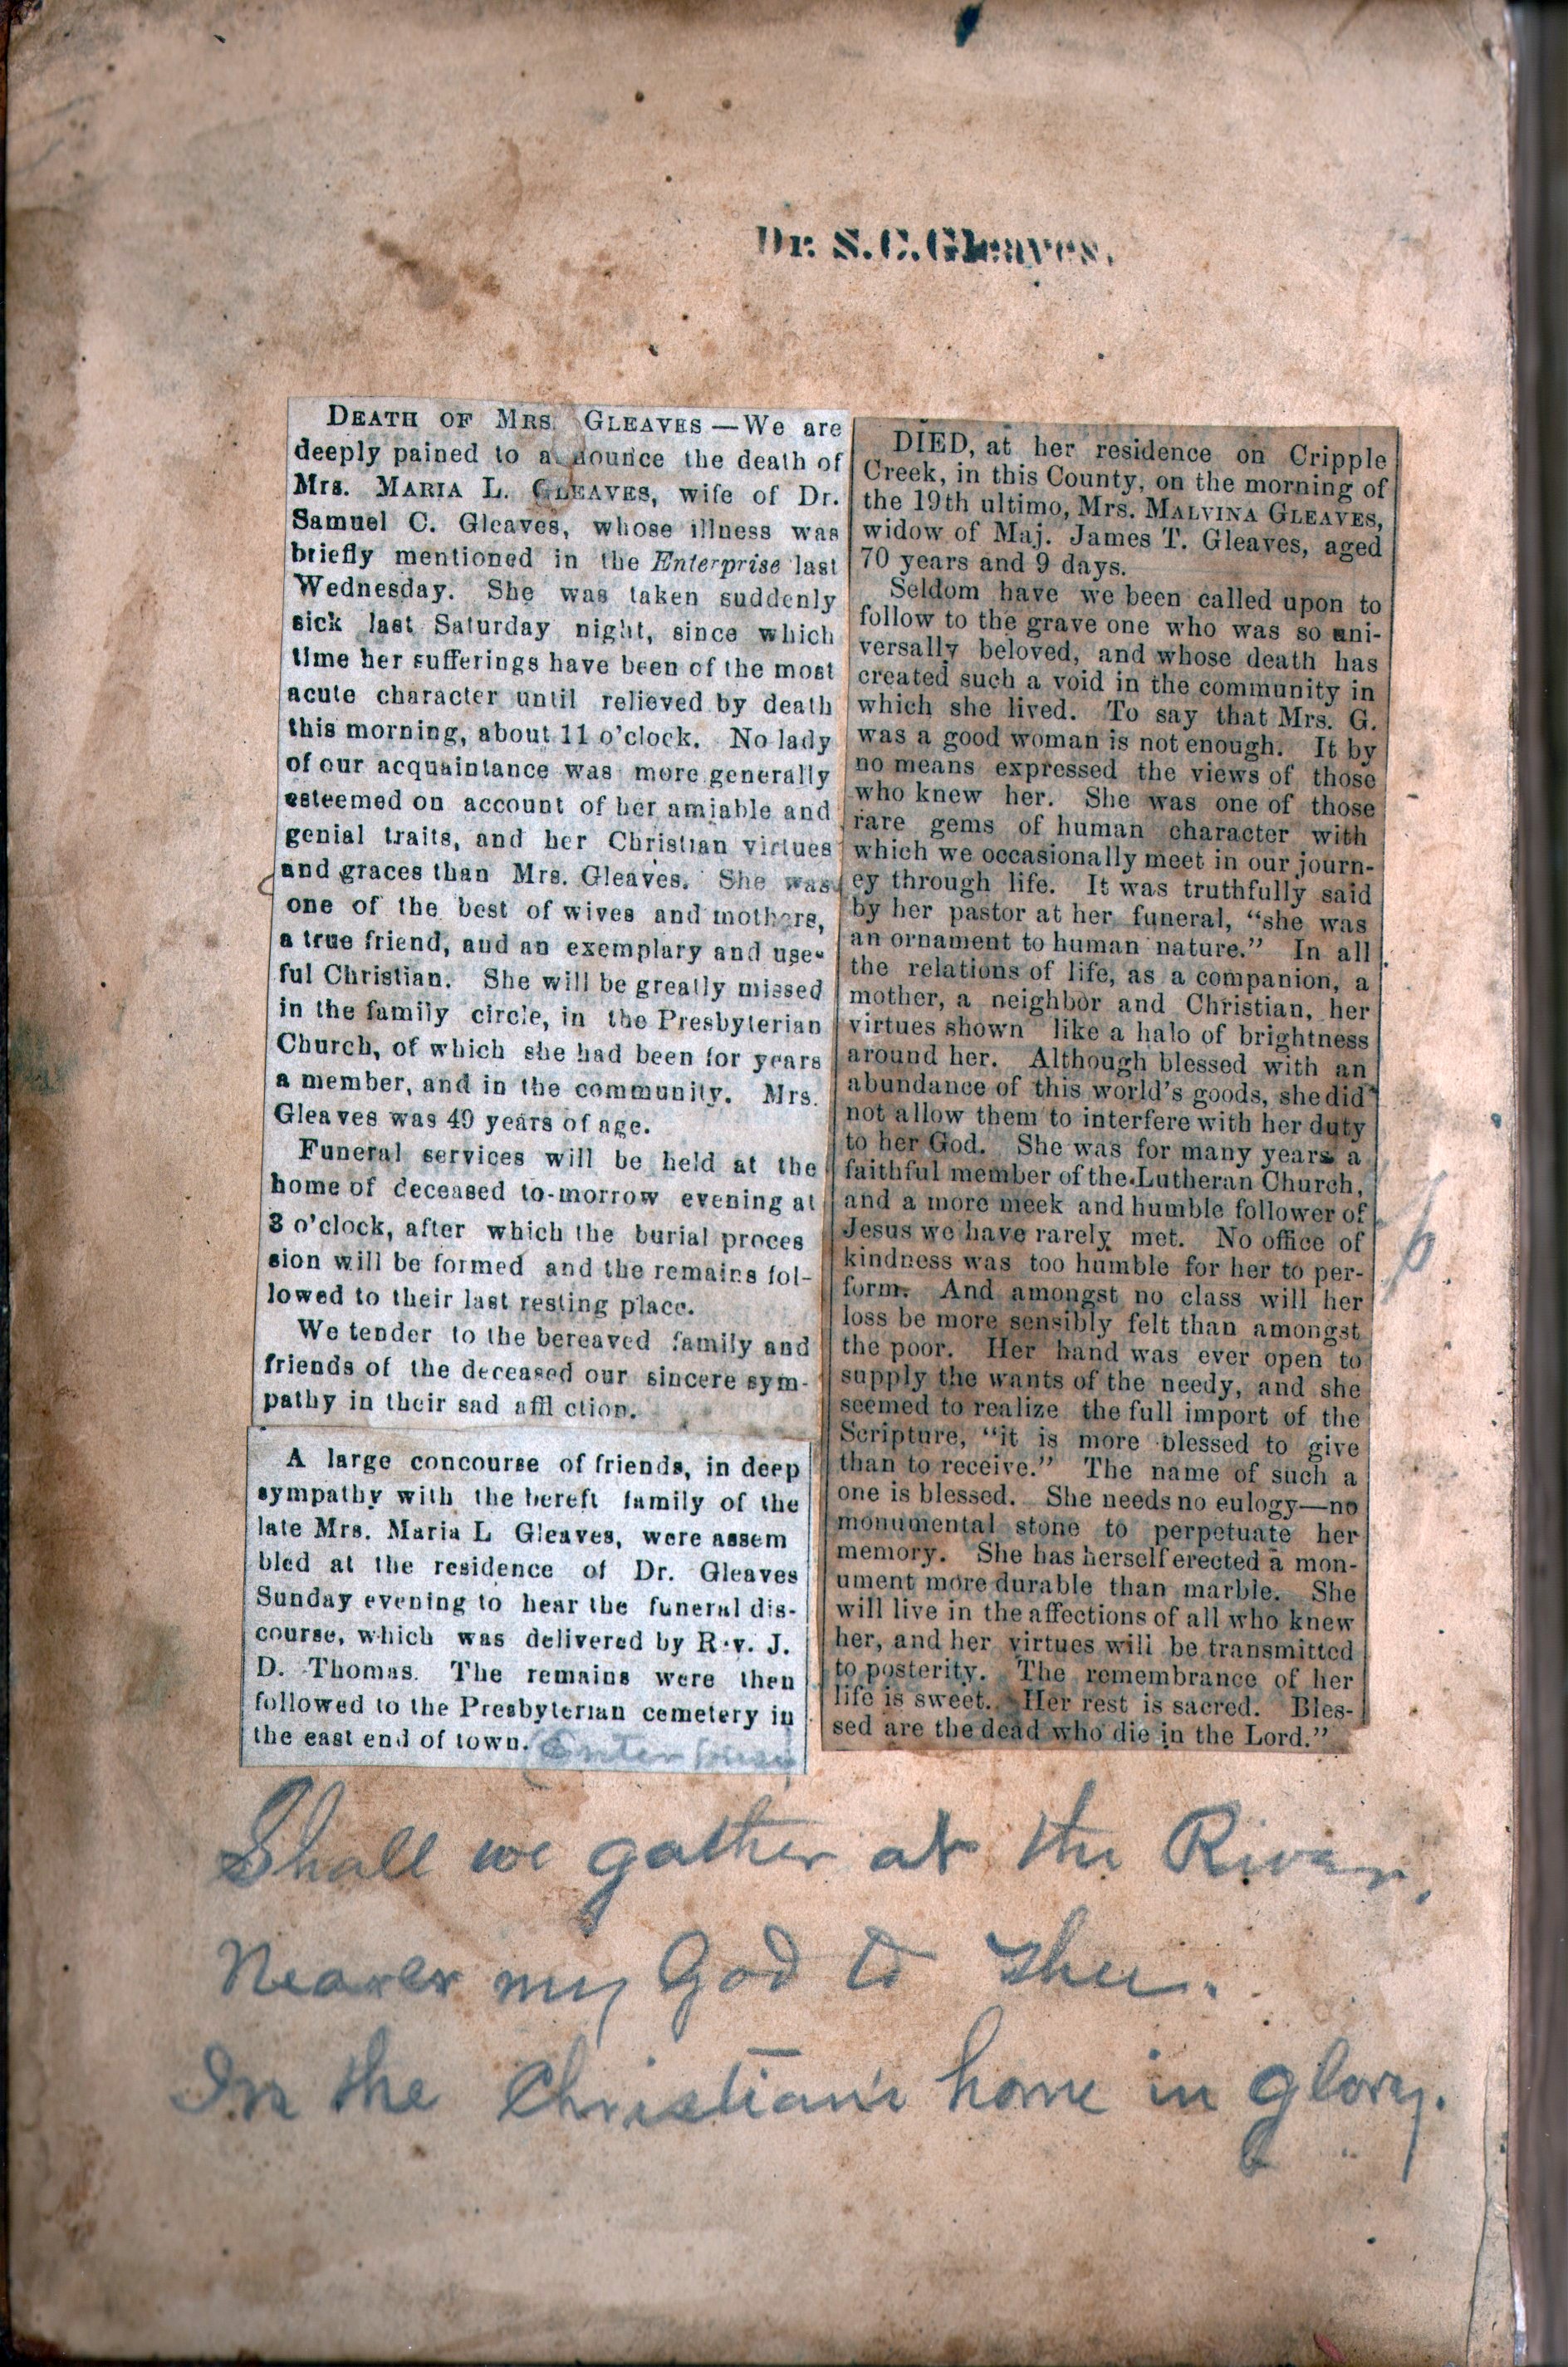 Dr. S.C.Gleaves.
DEATH OF MRS. GLEAVES —We are
deeply pained to a nounce the death of
Mrs. MARIA L. GLEAVES, wife of Dr.
Samuel C. Gleaves, whose illness was
briefly mentioned in the Enterprise last
Wednesday. She was taken suddenly
sick last Saturday night, since which
time her sufferings have been of the most
acute character until relieved by death
this morning, about 11 o'clock. No lady
of our acquaintance was more generally
esteemed on account of her amiable and
genial traits, and her Christian virtues
and graces than Mrs. Gleaves. She was
one of the best of wives and mothers,
a true friend, and an exemplary and use-
ful Christian. She will be greatly missed
in the family circle, in the Presbyterian
Church, of which she had been for years
a member, and in the community. Mrs.
Gleaves was 49 years of age.
Funeral services will be held at the
home of deceased to-morrow evening at
3 o'clock, after which the burial proces
sion will be formed and the remains fol-
lowed to their last resting place.
We tender to the bereaved family and
friends of the deceased our sincere sym-
pathy in their sad affl ction.
A large concourse of friends, in deep
sympathy with the bereft family of the
late Mrs. Maria L Gleaves, were assem
bled at the residence of Dr. Gleaves
Sunday evening to hear the funeral dis-
course, which was delivered by R v. J.
D. Thomas. The remains were then
followed to the Presbyterian cemetery in
the east end of town. Enterprise
DIED, at her residence on Cripple
Creek, in this County, on the morning of
the 19th ultimo, Mrs. MALVINA GLEAVES,
widow of Maj. James T. Gleaves, aged
70 years and 9 days.
Seldom have we been called upon to
follow to the grave one who was so uni-
versally beloved, and whose death has
created such a void in the community in
which she lived. To say that Mrs. G.
was a good woman is not enough. It by
no means expressed the views of those
who knew her. She was one of those
rare gems of human character with
which we occasionally meet in our journ-
ey through life. It was truthfully said
by her pastor at her funeral, "she was
an ornament to human nature." In all
the relations of life, as a companion, a
mother, a neighbor and Christian, her
virtues shown like a halo of brightness
around her. Although blessed with an
abundance of this world's goods, she did
not allow them to interfere with her duty
to her God. She was for many years a
faithful member of the Lutheran Church,
and a more meek and humble follower of
Jesus we have rarely met. No office of
kindness was too humble for her to per-
form. And amongst no class will her
loss be more sensibly felt than amongst
the poor. Her hand was ever open to
supply the wants of the needy, and she
seemed to realize the full import of the
Scripture, "it is more blessed to give
than to receive." The name of such a
one is blessed. She needs no eulogy—no
monumental stone to perpetuate her
memory. She has herself erected a mon-
ument more durable than marble. She
will live in the affections of all who knew
her, and her virtues will be transmitted
to posterity. The remembrance of her
life is sweet. Her rest is sacred. Bles-
sed are the dead who die in the Lord."
Shall we gather at the River,
Nearer my God to Thee.
In the Christian's home in glory.